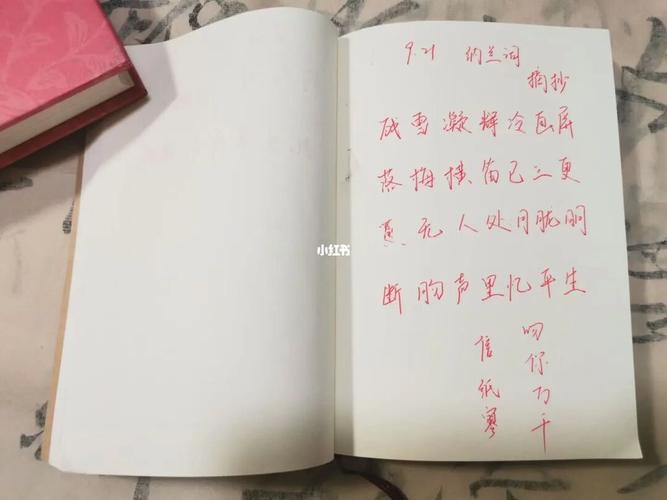 9.21 纳兰词
摘抄
残雪凝辉冷画屏
落梅横笛已三更
更无人处月胧明
断肠声里忆平生
吻你万千
信纸寥
小红书